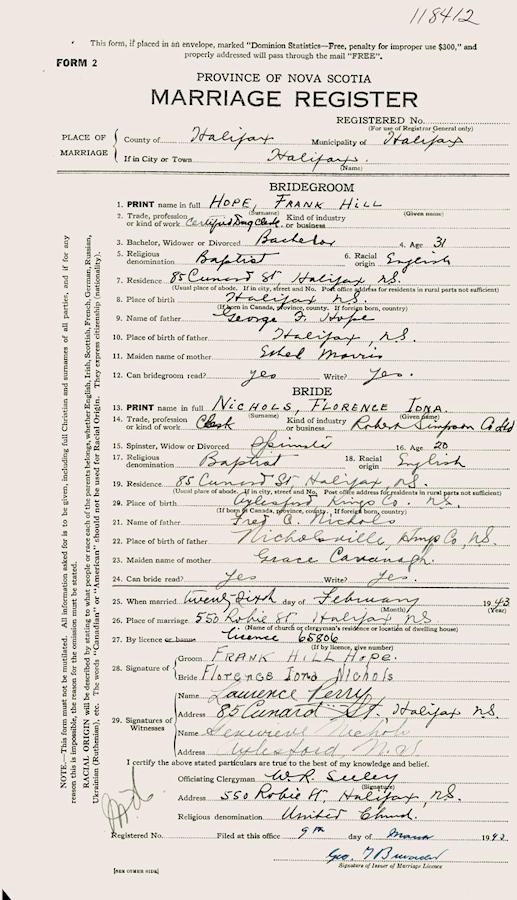 118412
This form, if placed in an envelope, marked "Dominion Statistics—Free, penalty for improper use $300," and
properly addressed will pass through the mail "FREE".
FORM 2
PROVINCE OF NOVA SCOTIA
MARRIAGE REGISTER
REGISTERED No.
(For use of Registrar General only)
PLACE OF MARRIAGE
County of Halifax Municipality of Halifax
If in City or Town Halifax.
(Name)
BRIDEGROOM
1. PRINT name in full HOPE, FRANK HILL
(Surname) (Given name)
2. Trade, profession or kind of work Certified Drug Clerk Kind of industry or business
3. Bachelor, Widower or Divorced Bachelor 4. Age 31
5. Religious denomination Baptist 6. Racial origin English
7. Residence 85 Cunard St Halifax, N.S.
(Usual place of abode. If in city, street and No. Post office address for residents in rural parts not sufficient)
8. Place of birth Halifax N.S.
(If born in Canada, province, county. If foreign born, country)
9. Name of father George F. Hope
10. Place of birth of father Halifax, N.S.
11. Maiden name of mother Ethel Morris
12. Can bridegroom read? yes Write? yes.
BRIDE
13. PRINT name in full NICHOLS, FLORENCE IONA.
(Surname) (Given name)
14. Trade, profession or kind of work Clerk Kind of industry or business Robert Simpson Co Ltd
15. Spinster, Widow or Divorced Spinster 16. Age 20
17. Religious denomination Baptist 18. Racial origin English
19. Residence 85 Cunard St, Halifax, N.S.
(Usual place of abode. If in city, street and No. Post office address for residents in rural parts not sufficient)
20. Place of birth Aylesford Kings Co. N.S.
(If born in Canada, province, county. If foreign born, country)
21. Name of father Fred C. Nichols
22. Place of birth of father Nicholsville, Kings Co, N.S.
23. Maiden name of mother Grace Cavanagh.
24. Can bride read? yes Write? yes.
25. When married twenty-sixth day of February 1943
(Month) (Year)
26. Place of marriage 550 Robie St Halifax, N.S.
(Name of church or clergyman's residence or location of dwelling house)
27. By licence or banns licence 65806
(If by licence, give number)
28. Signature of
Groom FRANK HILL HOPE.
Bride Florence Iona Nichols
29. Signatures of Witnesses
Name Laurence Perry
Address 85 Cunard St., Halifax N.S.
Name Genevieve Nichols
Address Aylesford, N.S.
I certify the above stated particulars are true to the best of my knowledge and belief.
Officiating Clergyman W.R. Seeley
(Signature)
Address 550 Robie St, Halifax, N.S.
Religious denomination United Church.
Registered No. Filed at this office 9th day of March 1943
Geo.
Signature of Issuer of Marriage Licence
[SEE OTHER SIDE]
NOTE.—This form must not be mutilated. All information asked for is to be given, including full Christian and surnames of all parties, and if for any
reason this is impossible, the reason for the omission must be stated.
RACIAL ORIGIN will be described by stating to what people or race each of the parents belongs, whether English, Irish, Scottish, French, German, Russian,
Ukrainian (Ruthenian), etc. The words "Canadian" or "American" should not be used for Racial Origin. They express citizenship (nationality).